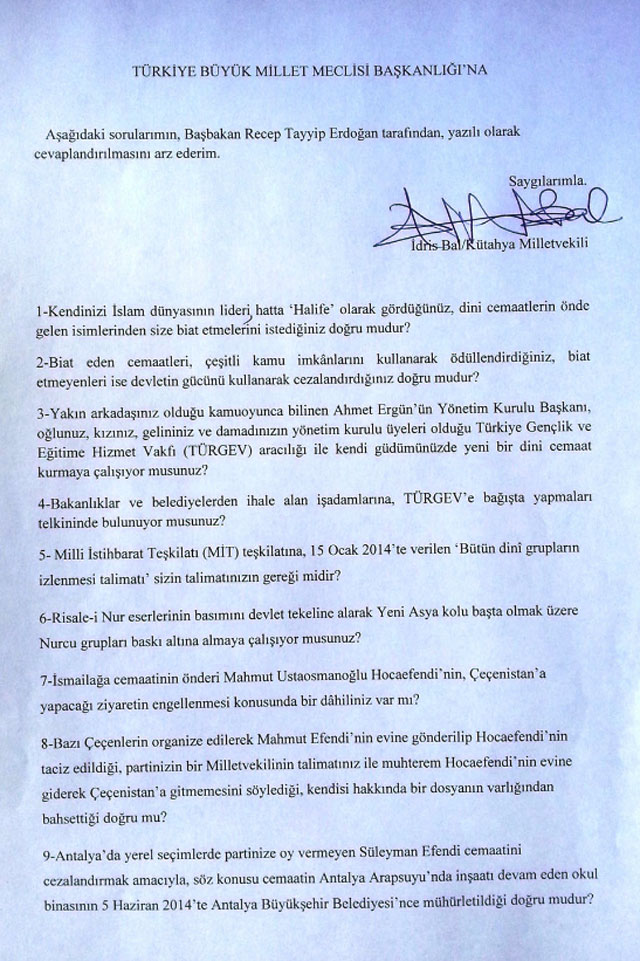 TÜRKİYE BÜYÜK MİLLET MECLİSİ BAŞKANLIĞI'NA
Aşağıdaki sorularımın, Başbakan Recep Tayyip Erdoğan tarafından, yazılı olarak
cevaplandırılmasını arz ederim.
Saygılarımla.
İdris Bal/Kütahya Milletvekili
1-Kendinizi İslam dünyasının lideri, hatta 'Halife' olarak gördüğünüz, dini cemaatlerin önde
gelen isimlerinden size biat etmelerini istediğiniz doğru mudur?
2-Biat eden cemaatleri, çeşitli kamu imkânlarını kullanarak ödüllendirdiğiniz, biat
etmeyenleri ise devletin gücünü kullanarak cezalandırdığınız doğru mudur?
3-Yakın arkadaşınız olduğu kamuoyunca bilinen Ahmet Ergün'ün Yönetim Kurulu Başkanı,
oğlunuz, kızınız, gelininiz ve damadınızın yönetim kurulu üyeleri olduğu Türkiye Gençlik ve
Eğitime Hizmet Vakfı (TÜRGEV) aracılığı ile kendi güdümünüzde yeni bir dini cemaat
kurmaya çalışıyor musunuz?
4-Bakanlıklar ve belediyelerden ihale alan işadamlarına, TÜRGEV'e bağışta yapmaları
telkininde bulunuyor musunuz?
5- Milli İstihbarat Teşkilatı (MİT) teşkilatına, 15 Ocak 2014'te verilen 'Bütün dinî grupların
izlenmesi talimatı' sizin talimatınızın gereği midir?
6-Risale-i Nur eserlerinin basımını devlet tekeline alarak Yeni Asya kolu başta olmak üzere
Nurcu grupları baskı altına almaya çalışıyor musunuz?
7-İsmailağa cemaatinin önderi Mahmut Ustaosmanoğlu Hocaefendi'nin, Çeçenistan'a
yapacağı ziyaretin engellenmesi konusunda bir dâhiliniz var mı?
8-Bazı Çeçenlerin organize edilerek Mahmut Efendi'nin evine gönderilip Hocaefendi'nin
taciz edildiği, partinizin bir Milletvekilinin talimatınız ile muhterem Hocaefendi'nin evine
giderek Çeçenistan'a gitmemesini söylediği, kendisi hakkında bir dosyanın varlığından
bahsettiği doğru mu?
9-Antalya'da yerel seçimlerde partinize oy vermeyen Süleyman Efendi cemaatini
cezalandırmak amacıyla, söz konusu cemaatin Antalya Arapsuyu'nda inşaatı devam eden okul
binasının 5 Haziran 2014'te Antalya Büyükşehir Belediyesi'nce mühürletildiği doğru mudur?